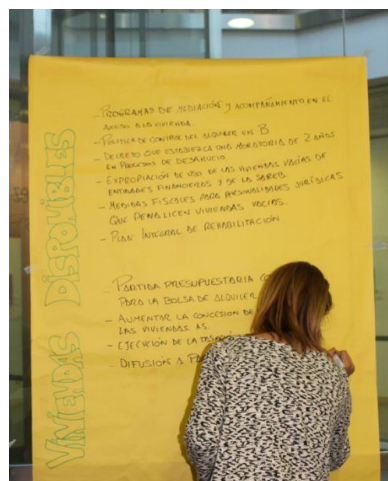 VIVIENDAS DISPONIBLES
- PROGRAMAS DE MEDIACIÓN Y ACOMPAÑAMIENTO EN EL
ACCESO A LA VIVIENDA.
- POLÍTICA DE CONTROL DEL ALQUILER EN B
- DECRETO QUE ESTABLEZCA UNA MORATORIA DE 2 AÑOS
EN PROCESOS DE DESAHUCIO.
- EXPROPIACIÓN DE USO DE LAS VIVIENDAS VACÍAS DE
ENTIDADES FINANCIERAS Y DE LA SAREB.
- MEDIDAS FISCALES PARA PERSONALIDADES JURÍDICAS
QUE PENALICEN VIVIENDAS VACÍAS.
- PLAN INTEGRAL DE REHABILITACIÓN
PARTIDA PRESUPUESTARIA
PARA LA BOLSA DE ALQUILER
- AUMENTAR LA CONCESIÓN DE
LAS VIVIENDAS AS.
- EJECUCIÓN DE LA
DIFUSIÓN A